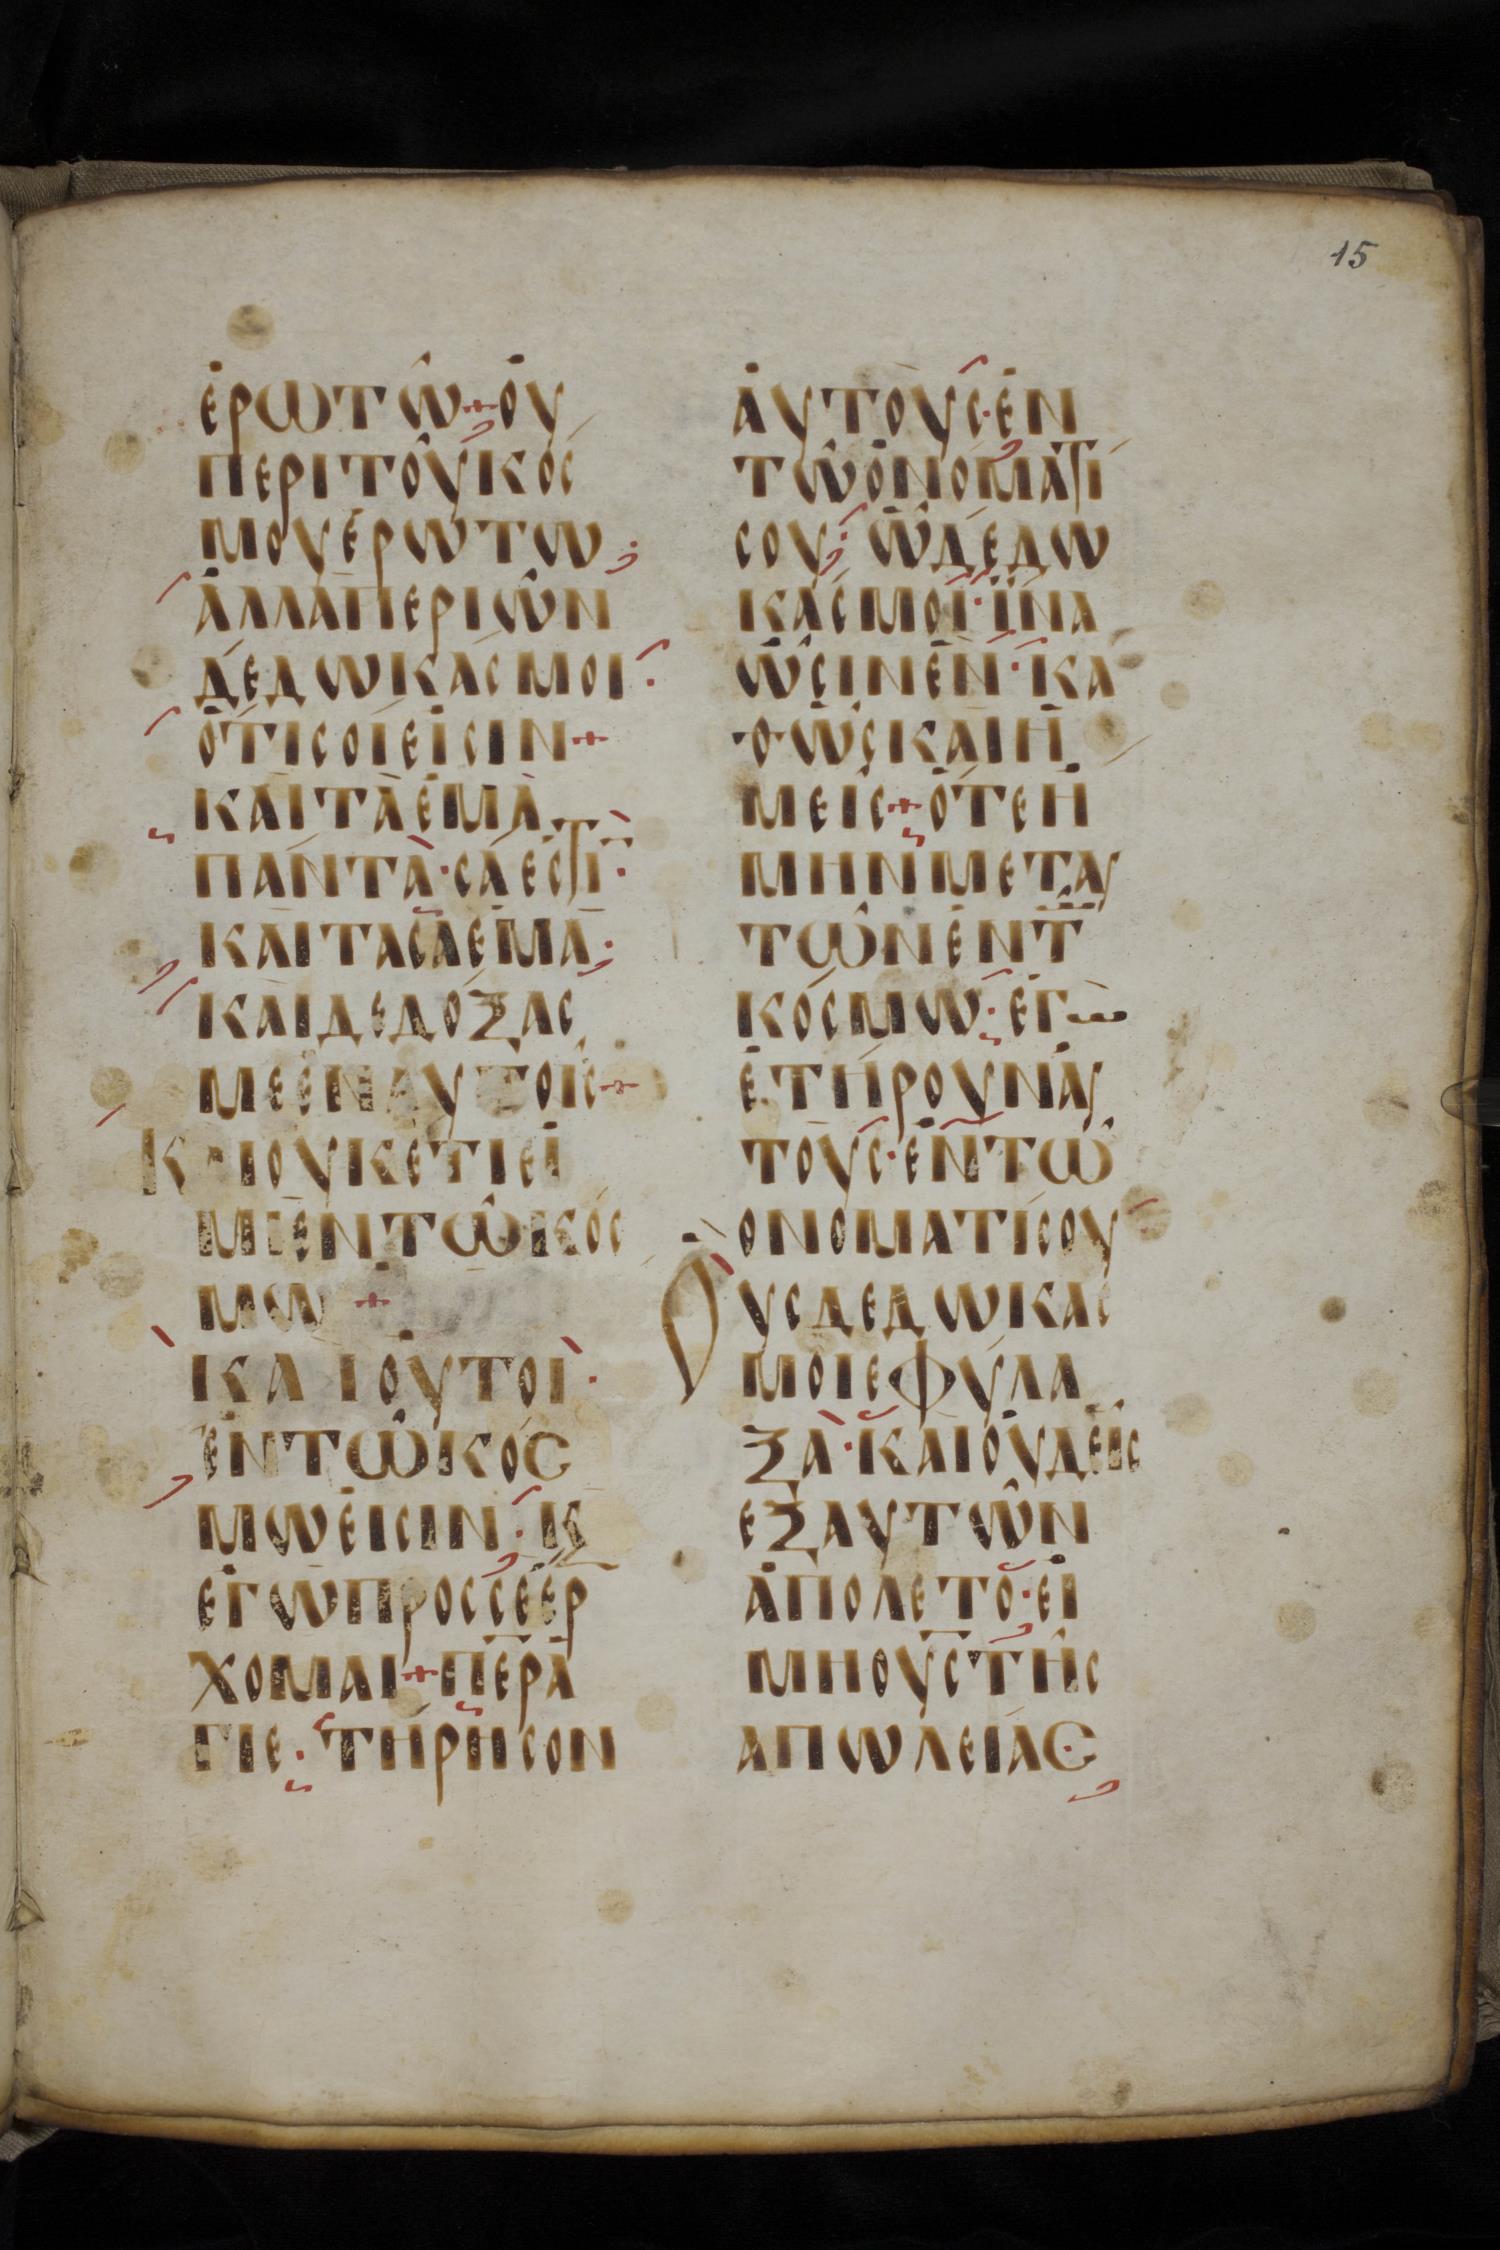 15
ἐρωτῶ + οὐ
περιτοῦκοσ
μουἐρωτω ;
ἀλλαπεριὧν
δέδωκάσμοι·
ὅτισοίεἰσιν +
καὶτὰἐμὰ
πάντὰ·σάἐστῑ·
καὶτασὰἐμά·
καὶδεδόξασ
μεἐναυτοῖσ +
Καιουκέτιεἰ
μὶἐντῶκόσ
μω +
Και οὗτοϊ·
ἐντῶκόσ
μωεἰσιν· κ̀
ἐγὼπροσσὲέρ
χομαι + πε̅ρἅ
γιε· τήρησον
ἀυτοὺσ·ἐν
τῶὀνόματί
σου· ὧδέδω
κάσμοι·ἵνα
ὦσινἓν· κα
θὼσκαὶἡ
μεῖσ + ὅτεἤ
μηνμεταυ
τῶνἐντ̅
κόσμω· ἐγὼ
ἐτήρουναυ
τοὺσ·ἐντῶ
ονοματίσου
Ουσδεδωκασ
μοιεφύλα
ξὰ· καιουδεὶσ
εξαυτῶν
ἀπόλετο· εἰ
μηουἱστῆσ
απωλείασ·